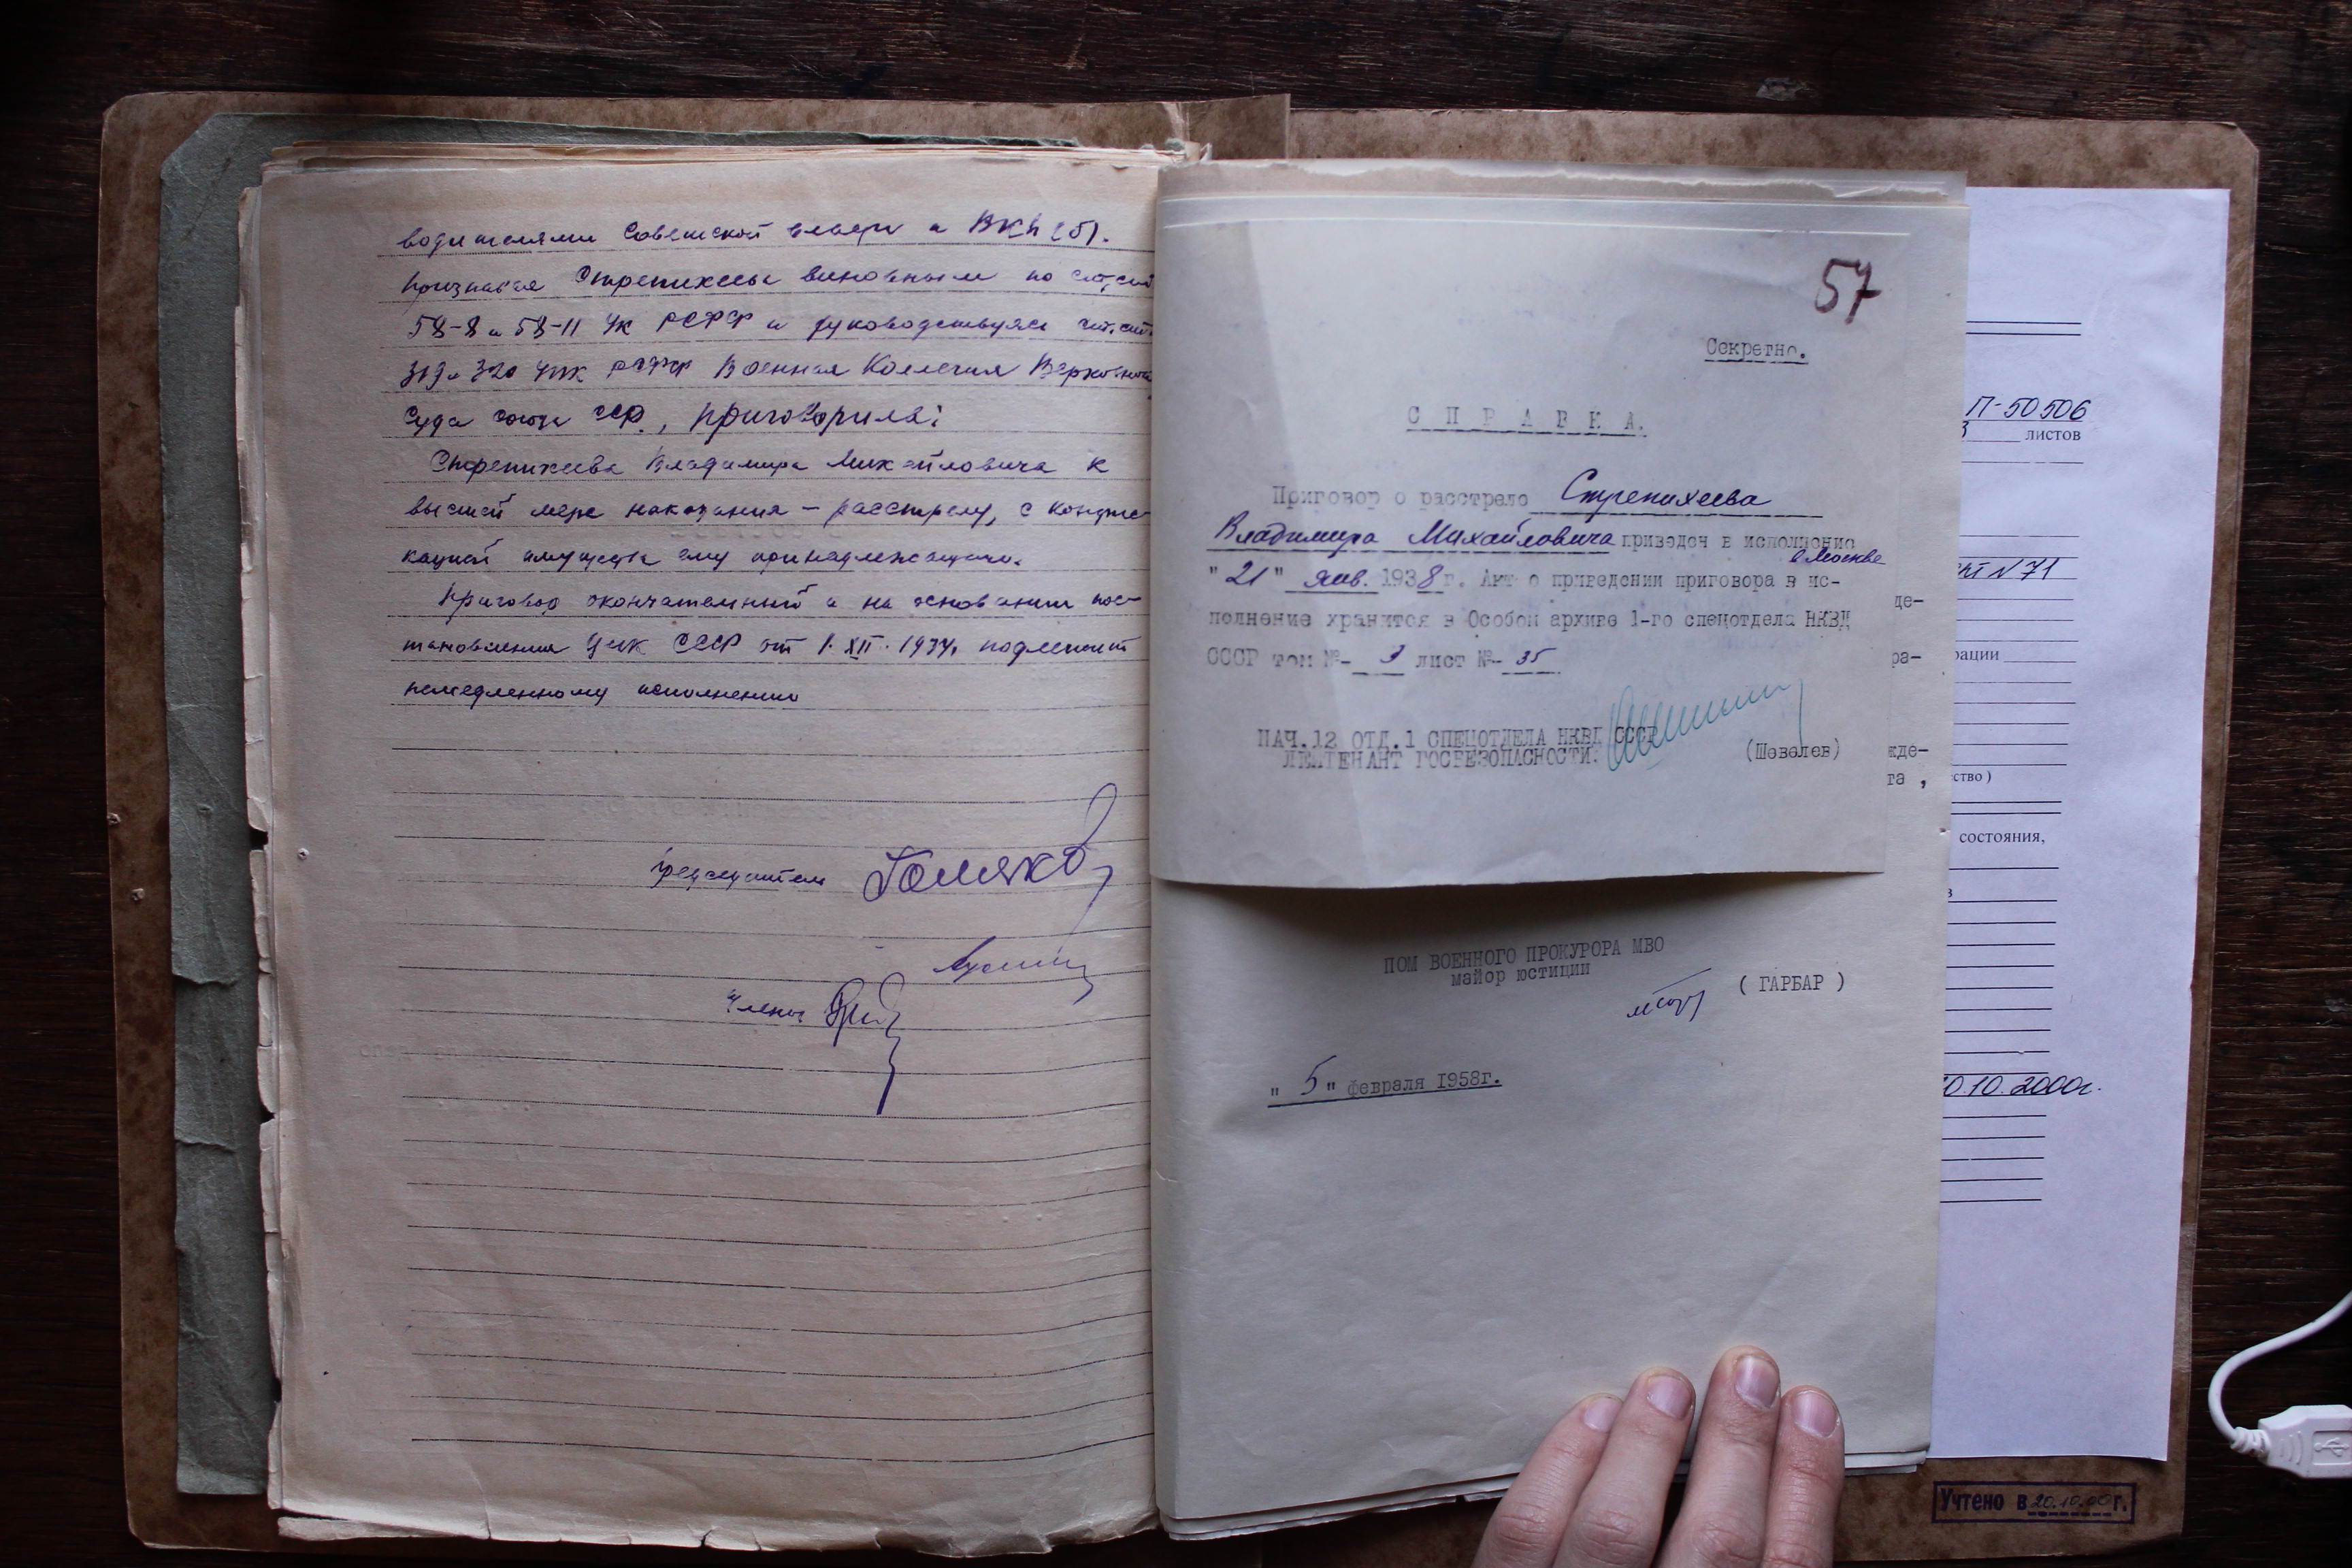 водителями Советской власти и ВКП(б).
Признавая Стрепихеева виновным по ст.ст.
58-8 и 58-11 УК РСФСР и руководствуясь ст.ст.
319 и 320 УПК РСФСР Военная Коллегия Верховного
Суда Союза ССР, приговорила:
Стрепихеева Владимира Михайловича к
высшей мере наказания - расстрелу, с конфис-
кацией имущества ему принадлежащего.
Приговор окончательный и на основании пос-
тановления ЦИК СССР от 1.XII.1934г. подлежит
немедленному исполнению
Председатель Голяков
Члены
57
Секретно.
С П Р А В К А.
Приговор о расстреле Стрепихеева
Владимира Михайловича приведен в исполнение
в Москве
"21" янв. 1938г. Акт о приведении приговора в ис-
полнение хранится в Особом архиве 1-го спецотдела НКВД
СССР том №- 3 лист №- 35
НАЧ.12 ОТД.1 СПЕЦОТДЕЛА НКВД СССР
ЛЕЙТЕНАНТ ГОСБЕЗОПАСНОСТИ: (Шевелев)
де-
ра-
жде-
та ,
ПОМ ВОЕННОГО ПРОКУРОРА МВО
майор юстиции
( ГАРБАР )
" 5 " февраля 1958г.
П-50506
3 листов
N 71
рации
ство )
состояния,
в
0.10.2000г.
Учтено в 20.10.00 г.